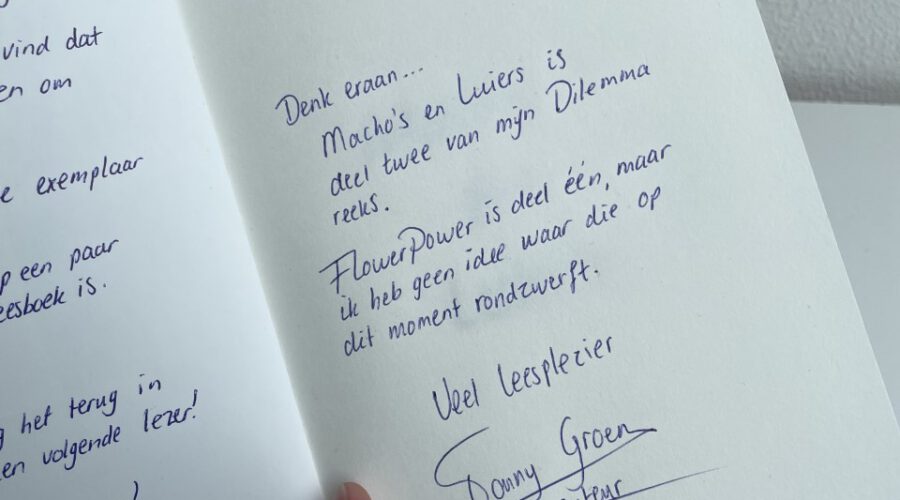 vind dat
en om
e exemplaar
p een paar
eesboek is.
het terug in
en volgende lezer!
Denk eraan...
Macho's en Luiers is
deel twee van mijn Dilemma
reeks.
FlowerPower is deel één, maar
ik heb geen idee waar die op
dit moment rondzwerft.
Veel leesplezier
Groen